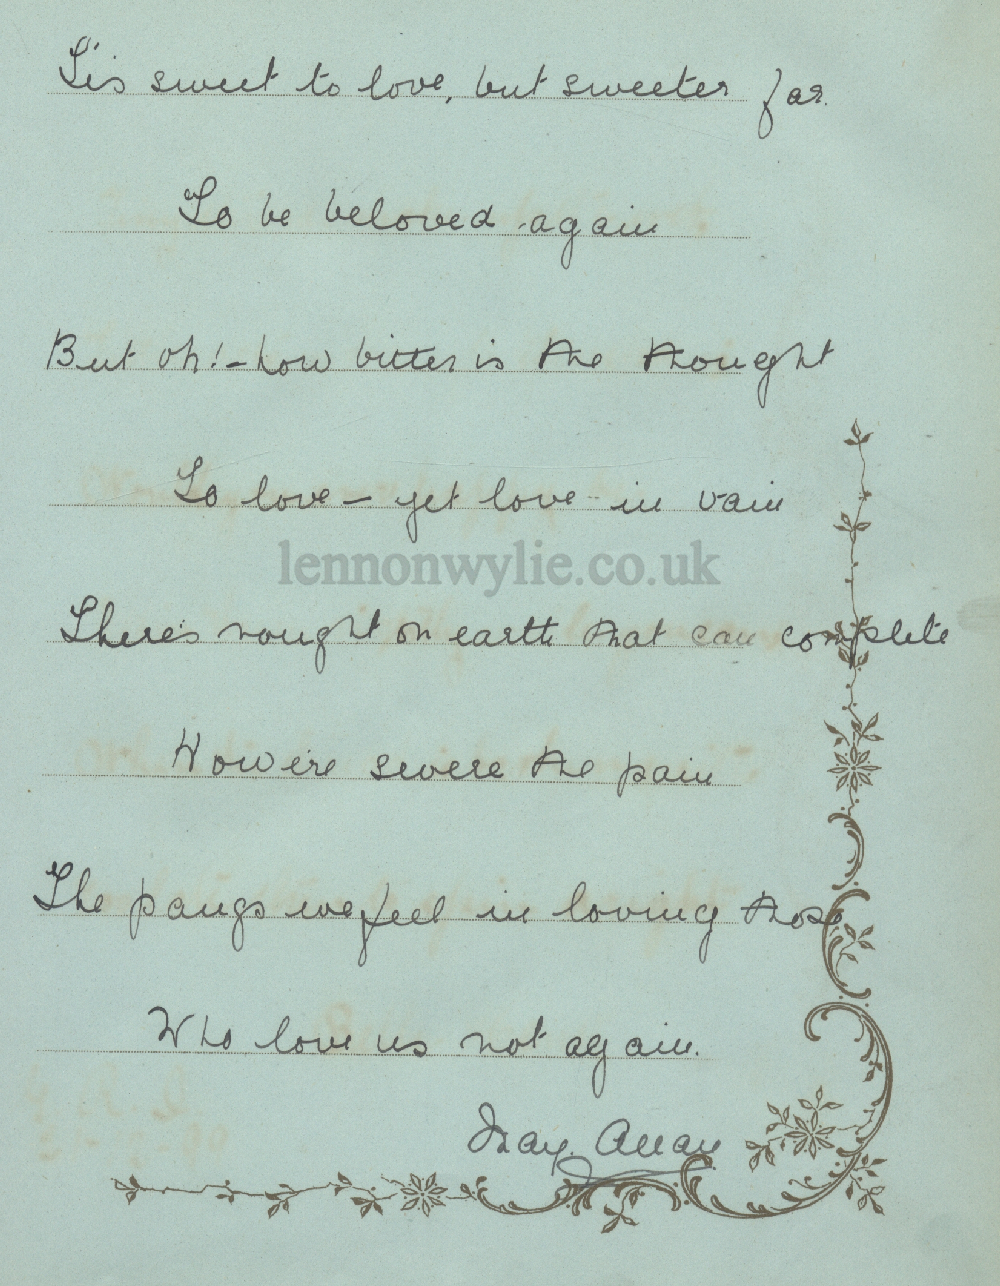 'Tis sweet to love, but sweeter far.
To be beloved again
But oh! – how bitter is the thought
To love – yet love in vain
lennonwylie.co.uk
There's nought on earth that can complete
Howe'er severe the pain
The pangs we feel in loving those
Who love us not again.
May Allan